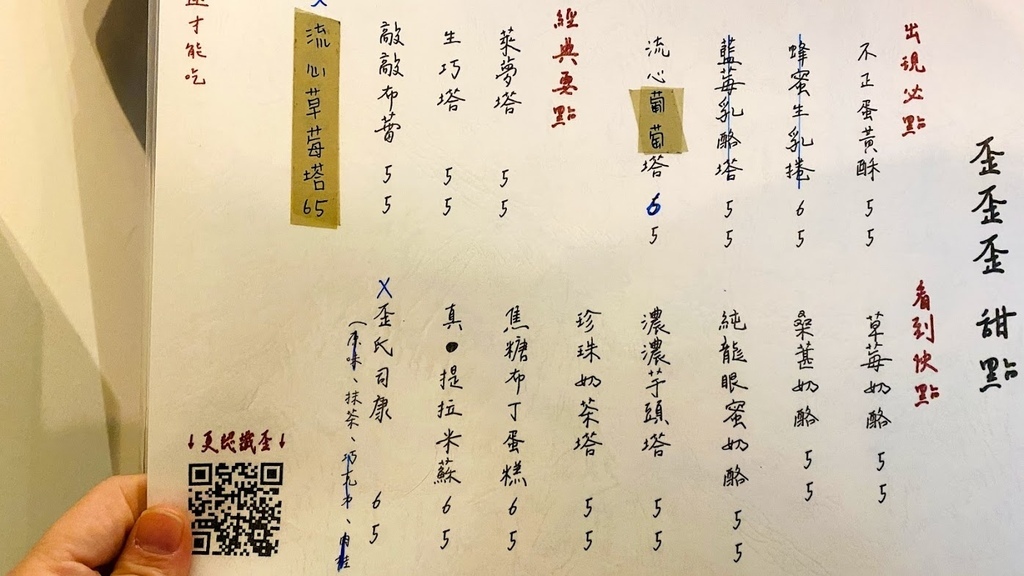 歪歪歪 甜點
出現必點
不正蛋黃酥 55
蜂蜜生乳捲 65
藍莓乳酪塔 55
流心葡萄塔 65
看到快點
草莓奶酪 55
桑葚奶酪 55
純龍眼蜜奶酪 55
濃濃芋頭塔 55
珍珠奶茶塔 55
經典要點
萊夢塔 55
生巧塔 55
敲敲布蕾 55
X
流心草莓塔 65
焦糖布丁蛋糕 65
真•提拉米蘇 65
X歪氏司康 65
(原味、抹茶、巧克力、肉桂
才能吃
↓更認識歪↓